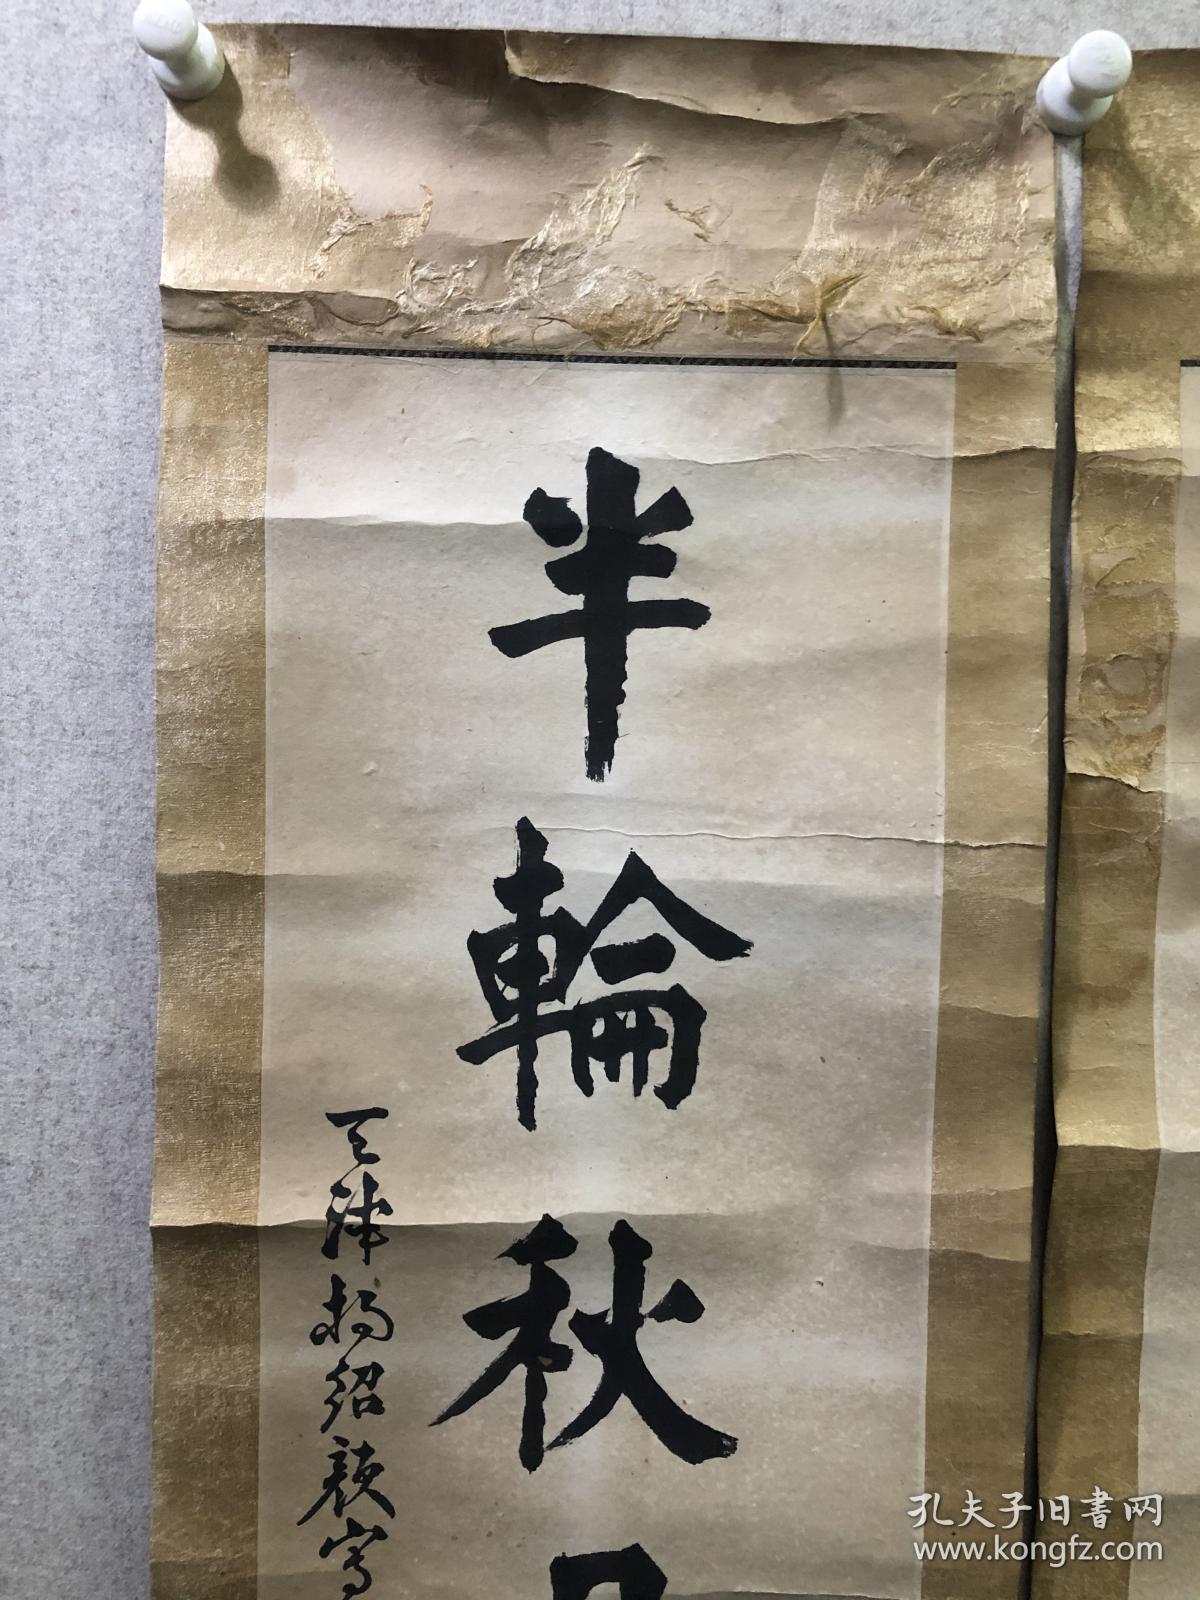 半輪秋
天津楊紹顔寫
孔夫子旧書网
www.kongfz.com